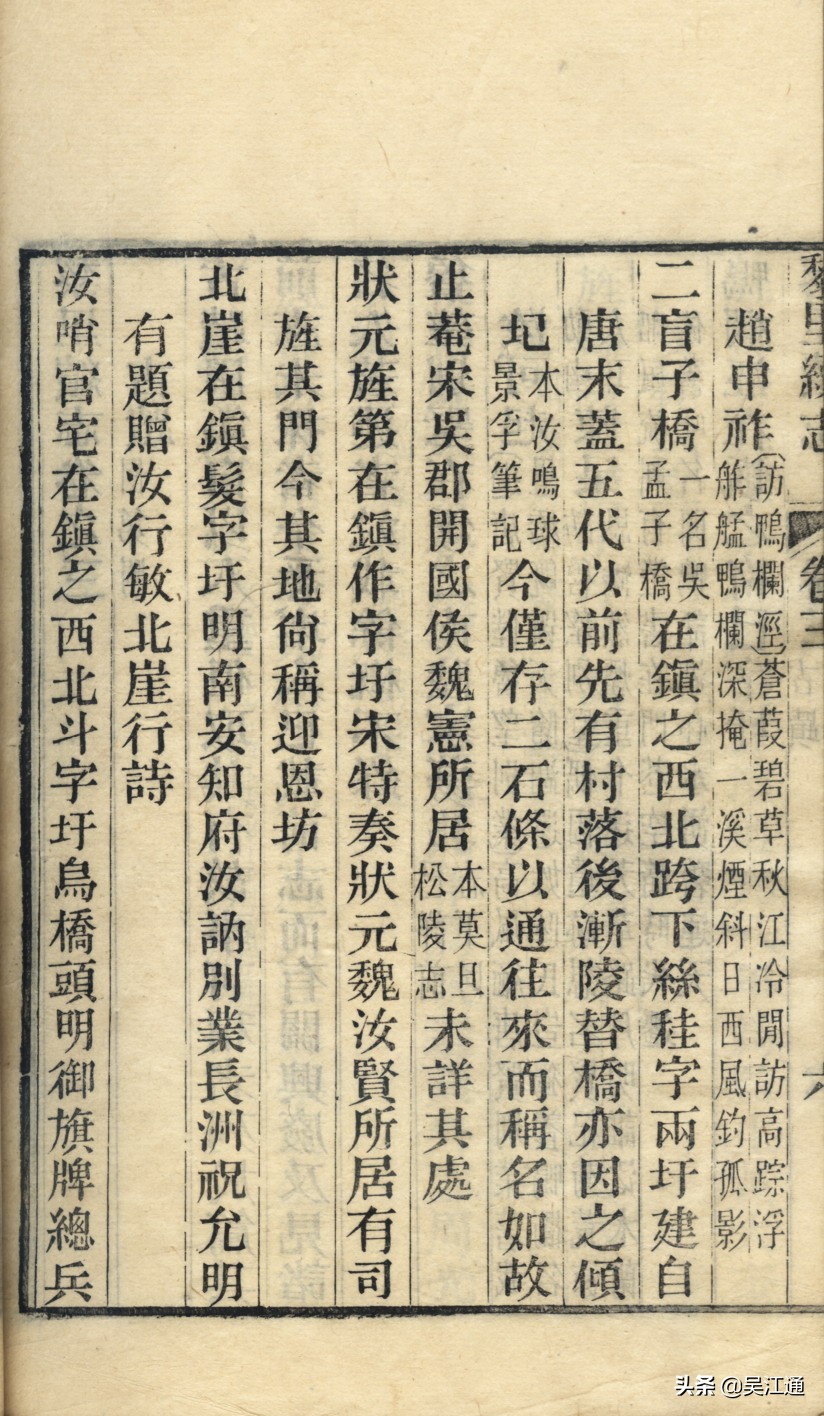 黎里續志 卷三 六
趙申祚(訪鴨欄涇)蒼葭碧草秋江冷閒訪高踪浮舴艋鴨欄深掩一溪煙斜日西風釣孤影
二盲子橋一名吳孟子橋在鎮之西北跨下絲秸字兩圩建自
唐末蓋五代以前先有村落後漸陵替橋亦因之傾
圮本汝鳴球景孚筆記今僅存二石條以通往來而稱名如故
止菴宋吳郡開國侯魏憲所居本莫旦松陵志未詳其處
狀元旌第在鎮作字圩宋特奏狀元魏汝賢所居有司
旌其門今其地尙稱迎恩坊
北崖在鎮髮字圩明南安知府汝訥別業長洲祝允明
有題贈汝行敏北崖行詩
汝哨官宅在鎮之西北斗字圩烏橋頭明御旗牌總兵
头条 @吴江通